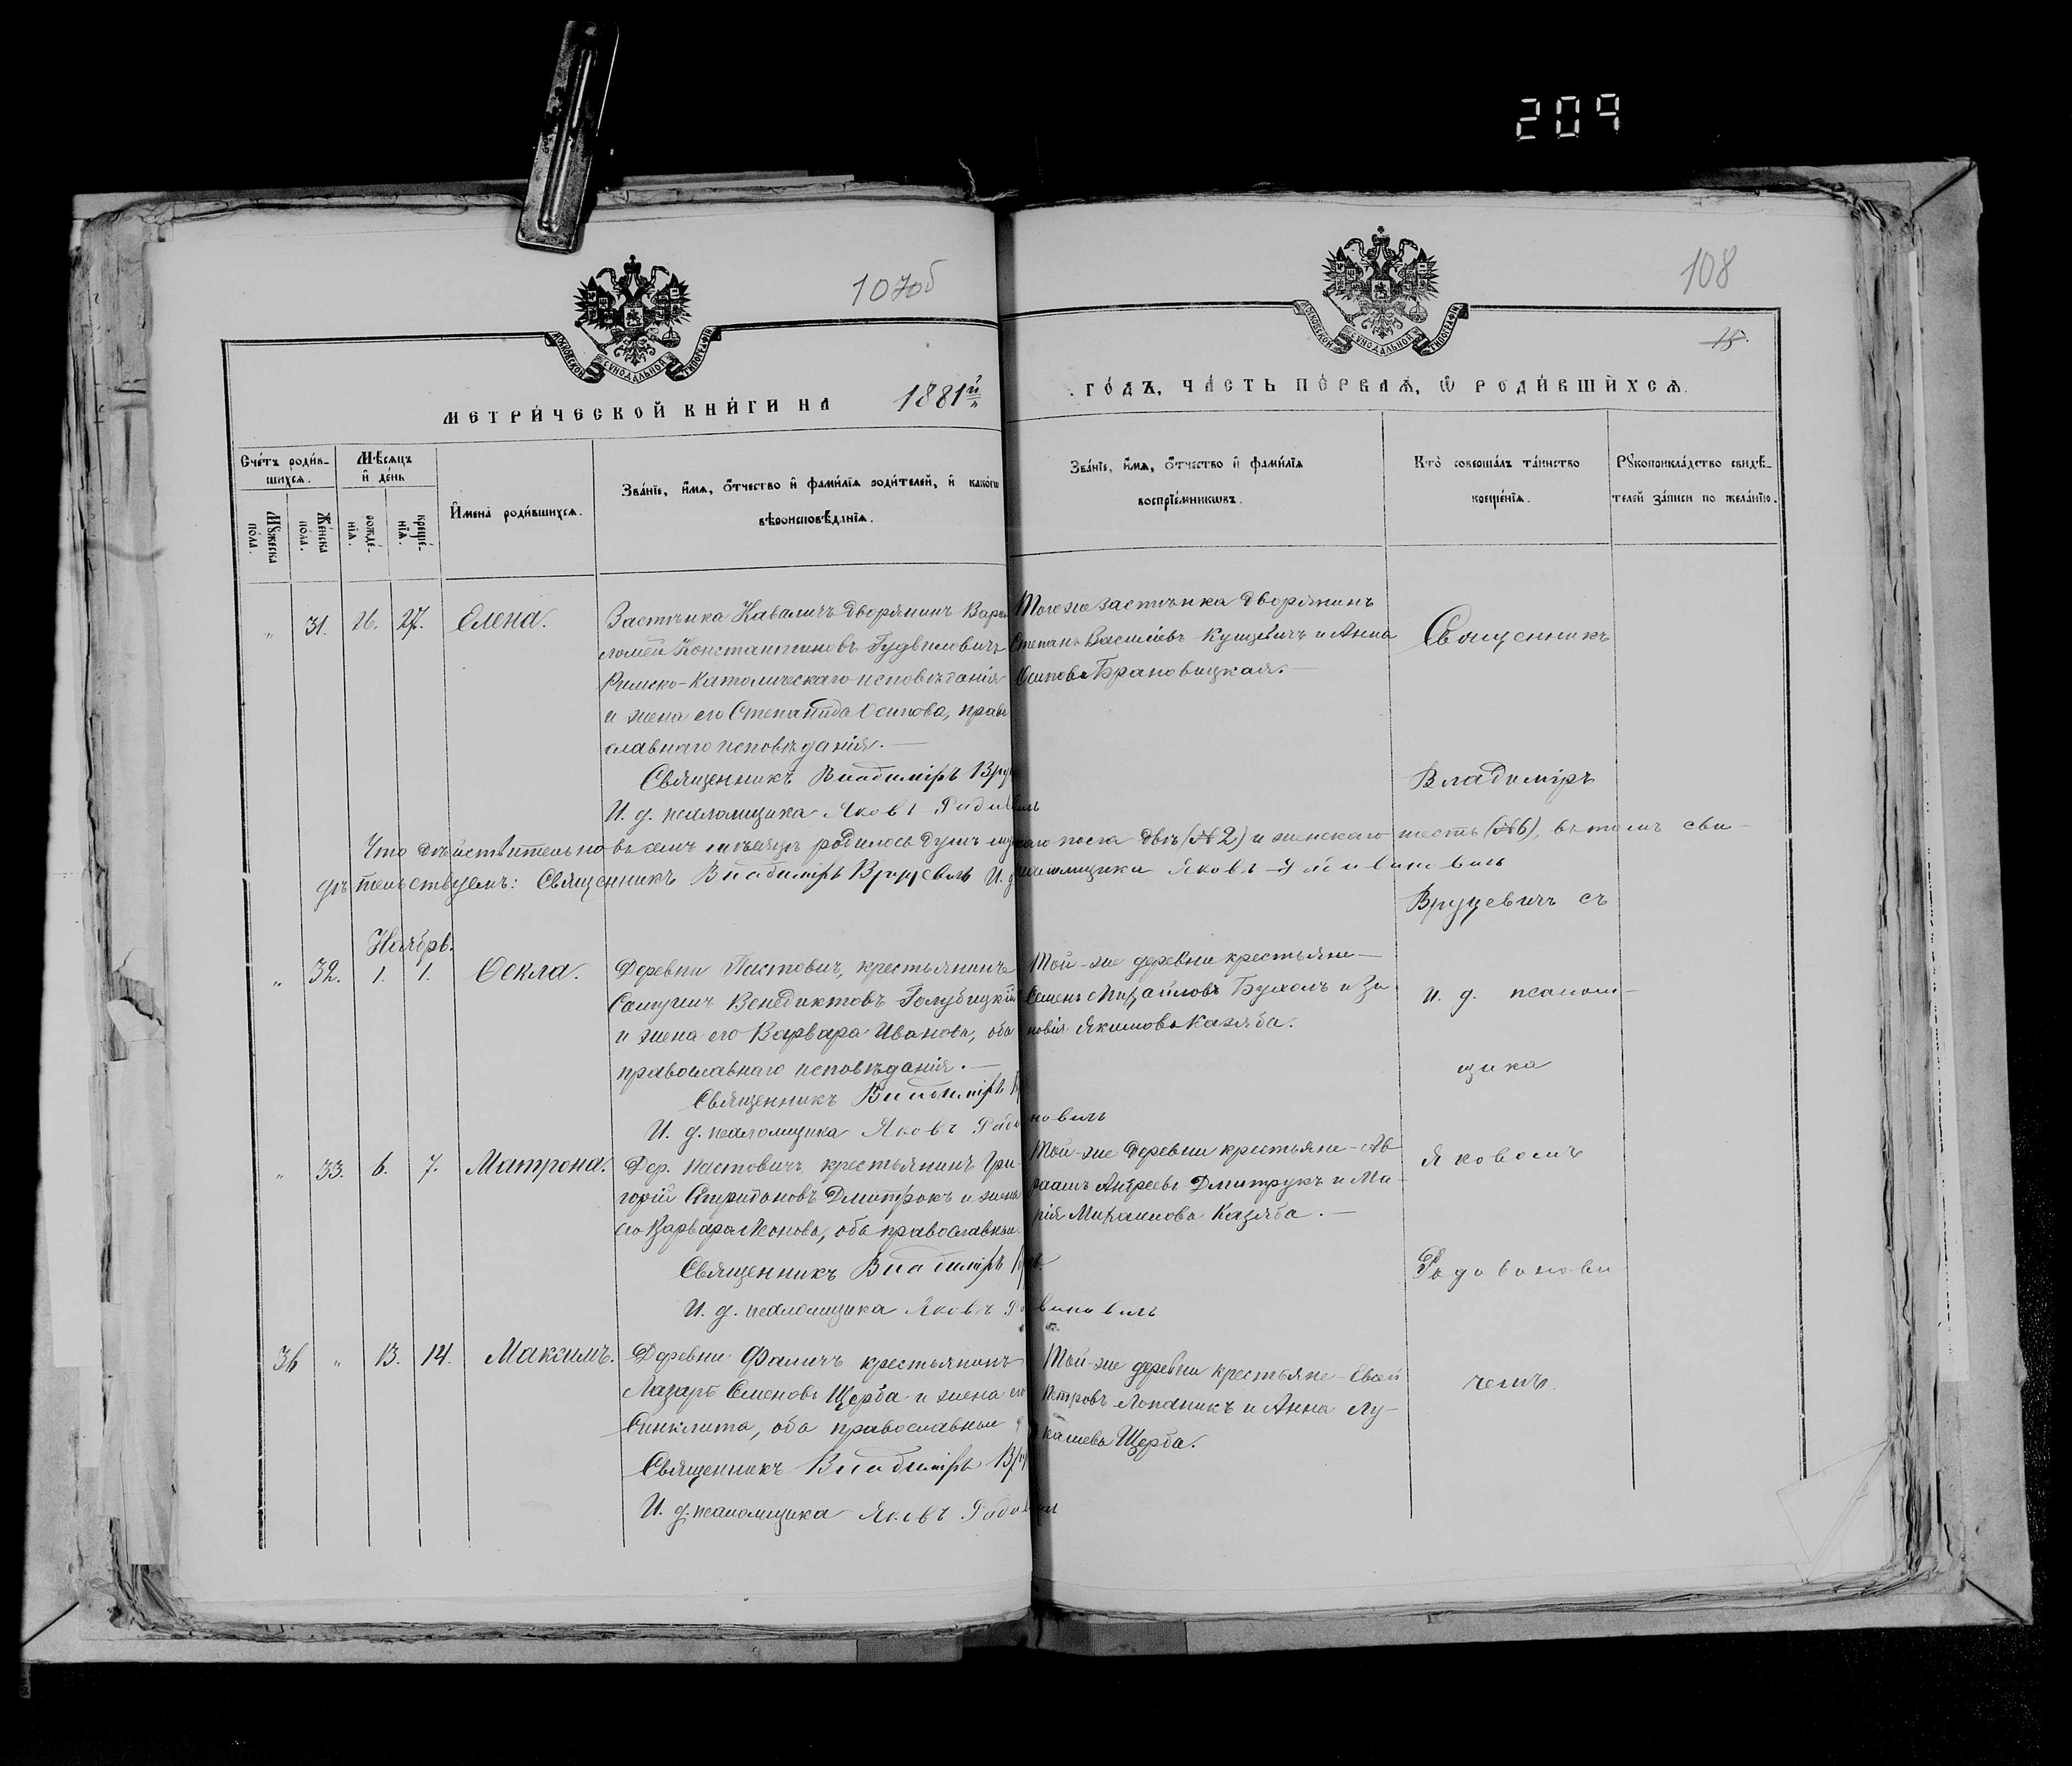 209
107об
108
18.
МОСКОВСКОЙ СѴНОДАЛЬНОЙ ТИПОГРАФІИ
МОСКОВСКОЙ СѴНОДАЛЬНОЙ ТИПОГРАФІИ
МЕТРИ́ЧЕСКОЙ КНИ́ГИ НА 1881й ГО́ДЪ, ЧА́СТЬ ПЕ́РВАѦ, Ѿ РОДИ́ВШИХСѦ.
Сче́тъ роди́вшихсѧ.
Мѣ́сяцъ и҆ де́нь
Мꙋ́жеска по́ла.
Же́нска по́ла.
рожде́нїѧ.
креще́нїѧ.
И҆мена̀ роди́вшихсѧ.
Зва́нїе, и҆́мѧ, ѻ҆́тчество и҆ фами́лїѧ роди́телей, и҆ како́гѡ
вѣроисповѣ́данїѧ.
Зва́нїе, и҆́мѧ, ѻ҆́тчество и҆ фами́лїѧ
воспрїе́мникѡвъ.
Кто̀ соверша́лъ та́инство
креще́нїѧ.
Рꙋкоприкла́дство свидѣ́-
телей за́писи по жела́нїю.
„ 31. 26. 27. Елена.
Застѣнка Каваличъ дворянинъ Варѳо
ломей Константиновъ
Римско-Католическаго исповѣданія
и жена его Степанида Осипова, право
славнаго исповѣданія.—
Священникъ Владиміръ Вру
И. д. псаломщика Яковъ
Тогоже застѣнка дворянинъ
Степанъ Васильевъ Куцевичъ и Анна
Осипова Брановицкая.—
Священникъ
Владиміръ
Что дѣйствительно въ семъ мѣсяцѣ родилось душъ мужскаго пола двѣ (№2) и женскаго шесть (№6), въ томъ сви-
дѣтельствуемъ: Священникъ Владиміръ Вруцевичъ И. д. псаломщика Яковъ
Вруцевичъ съ
Ноябрь.
„ 32. 1. 1. Ѳекла.
Деревни Пастовичъ, крестьянинъ
Самуилъ Венедиктовъ Голубицкій
и жена его Варвара Иванова, оба
православнаго исповѣданія.—
Священникъ Владиміръ
И. д. псаломщика Яковъ
Той-же деревни крестьяне—
Семенъ Михайловъ Бухалъ и Зи
новія Якимова Казяба.
и. д. псалом-
щика
„ 33. 6. 7. Матрона.
Дер. Пастовичъ, крестьянинъ Гри-
горій Спиридоновъ Дмитрокъ и жена
его Варвара Леонова, оба православные.
Священникъ Владиміръ
И. д. псаломщика Яковъ
Той-же деревни крестьяне—Ав-
раамъ Андреевъ Дмитрукъ и Ма-
рія Михаилова Казяба.—
Яковомъ
Родовонови
36 „ 13. 14. Максимъ.
Деревни Фаличъ крестьянинъ
Лазарь Семеновъ Щерба и жена его
Синклита, оба православные
Священникъ Владиміръ Вру
И. д. псаломщика Яковъ
Той-же деревни крестьяне—Евсей
Петровъ Лопаникъ и Анна Лу-
кашева Щерба.
чемъ.